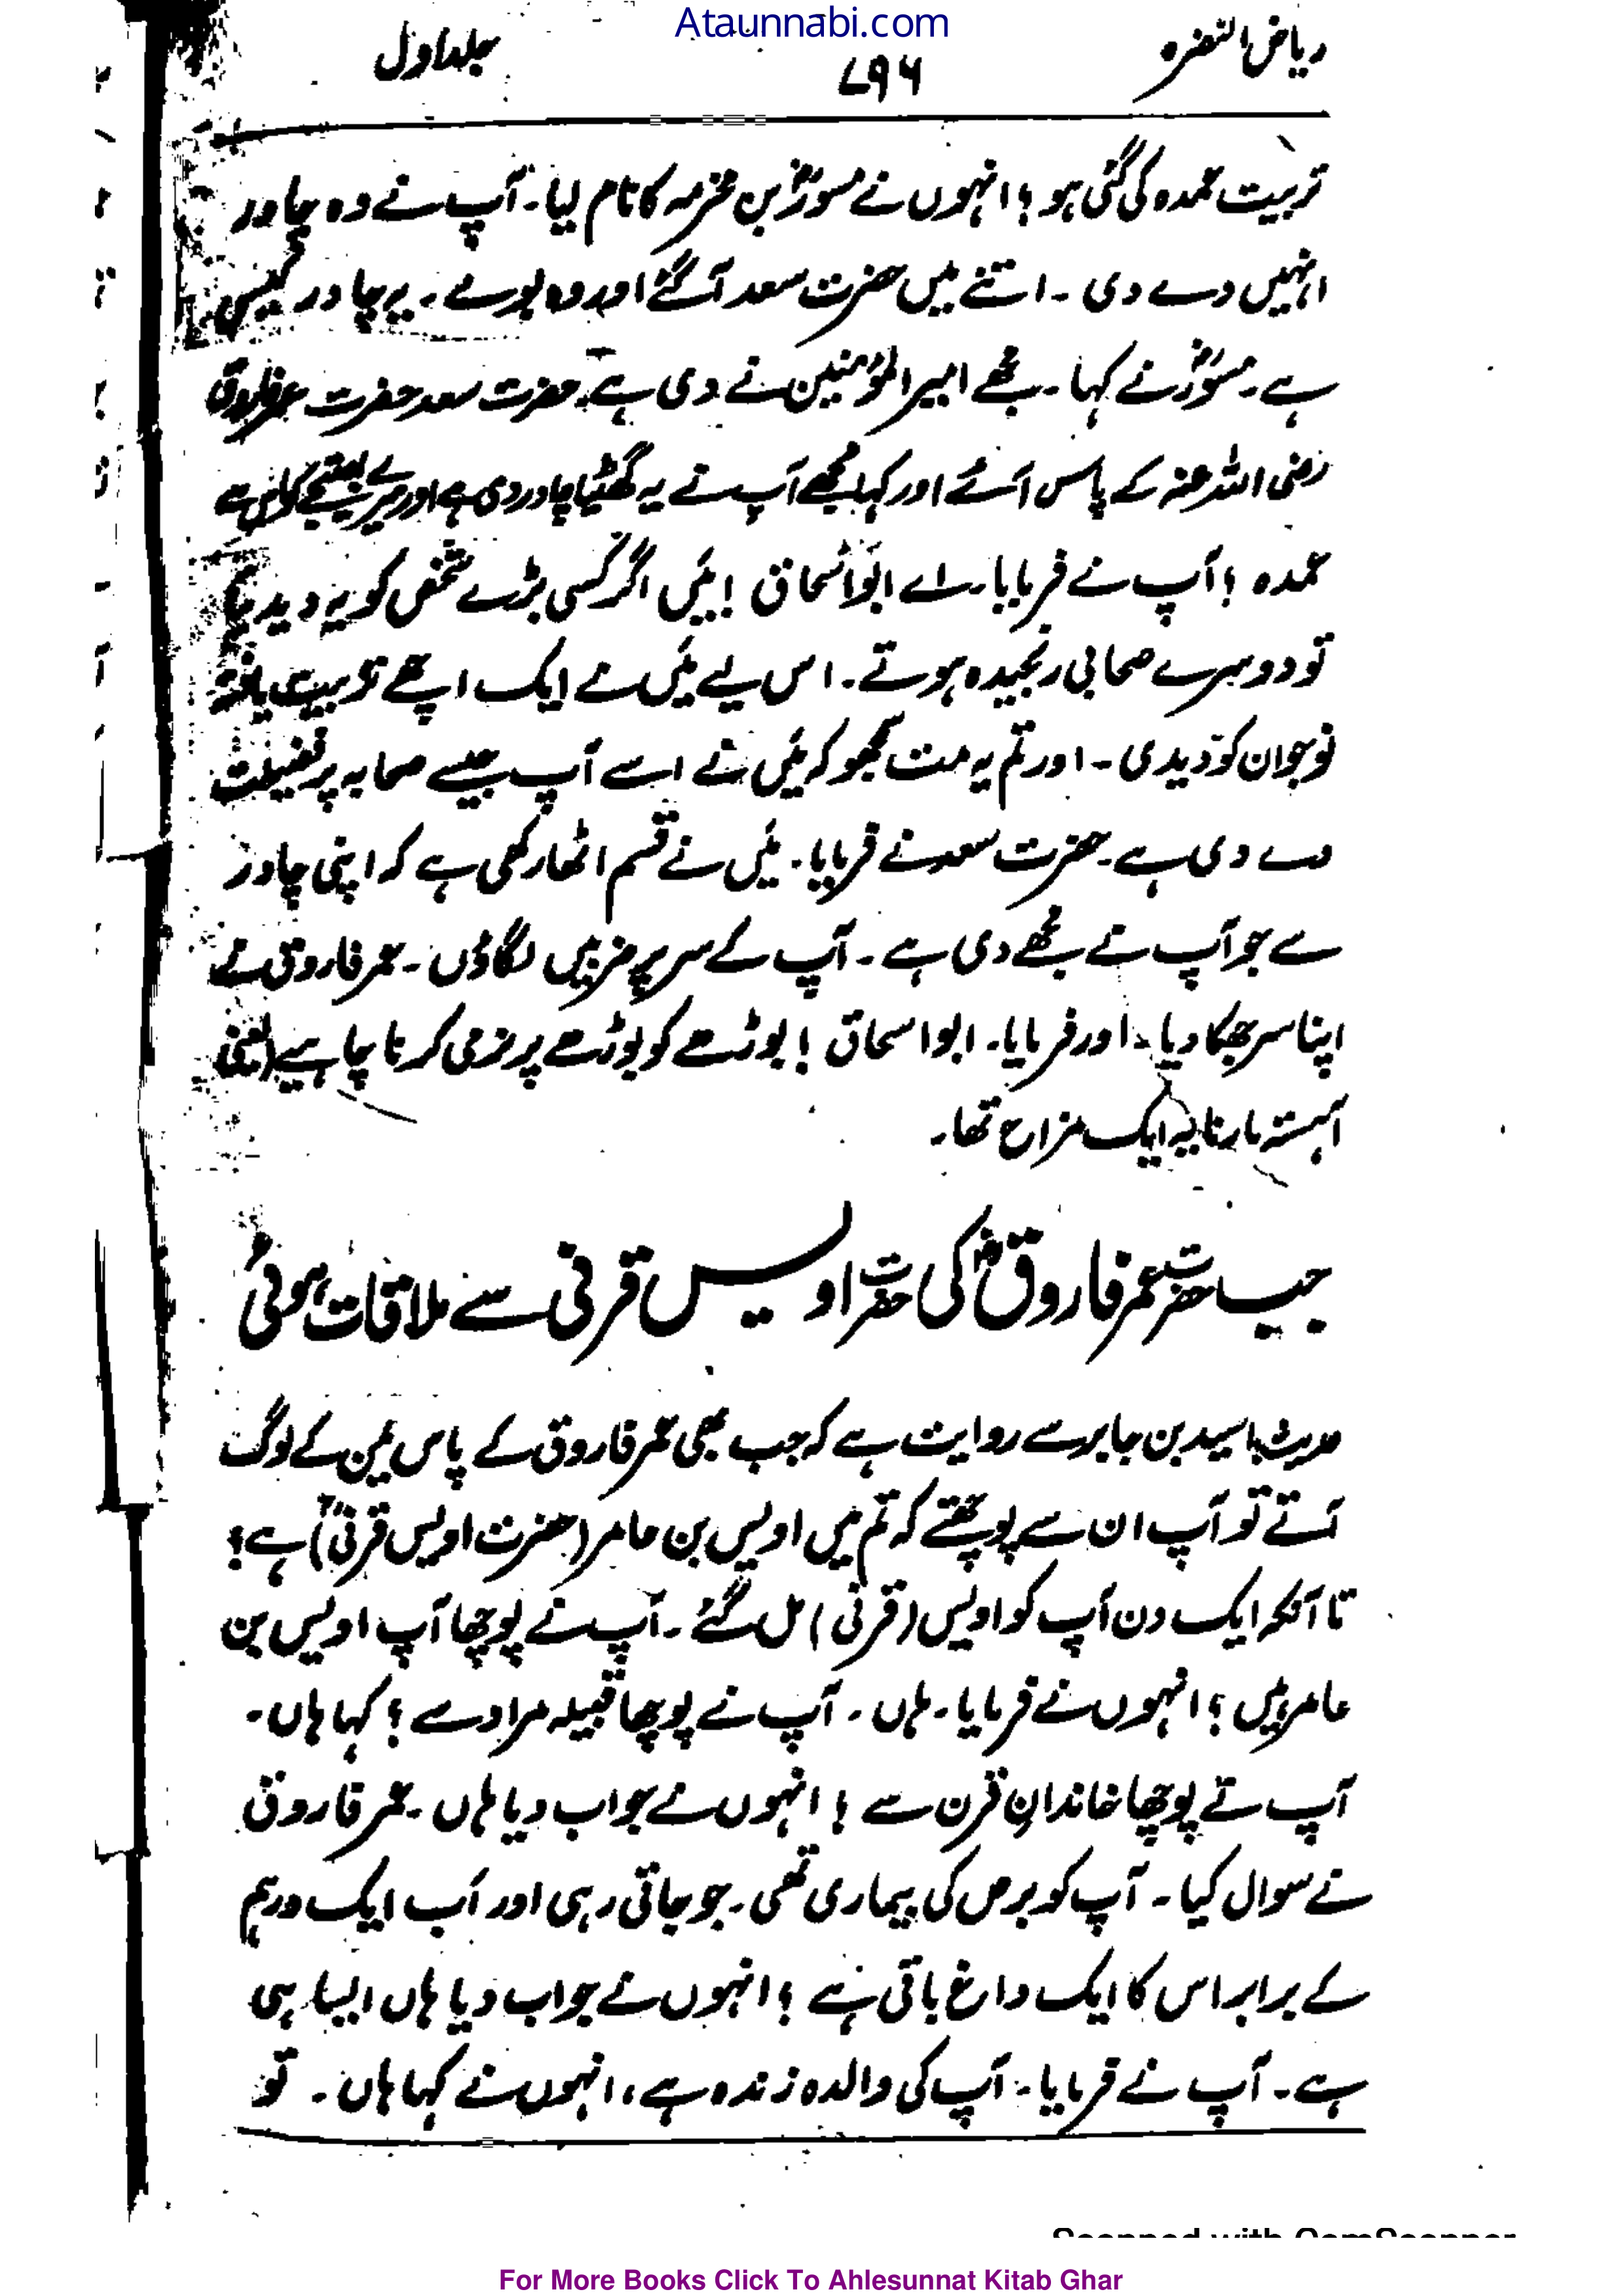 Ataunnabi.com
ریاض النضرہ ۷۹۶ جلد اول
تربیت عمدہ کی گئی ہو؟ انہوں نے مسورؓ بن مخرمہ کا نام لیا۔ آپ نے وہ چادر
انہیں دے دی۔ اتنے میں حضرت سعد آگئے اور وہ بولے۔ یہ چادر کیسی
ہے۔ مسورؓ نے کہا۔ مجھے امیر المؤمنین نے دی ہے۔ حضرت سعد حضرت عمر فاروق
رضی اللہ عنہ کے پاس آئے اور کہا مجھے آپ نے یہ گھٹیا چادر دی ہے اور میرے بھتیجے کو اس سے
عمدہ؟ آپ نے فرمایا۔ اے ابو اسحاق! میں اگر کسی بڑے شخص کو یہ دیدیتا
تو دوسرے صحابی رنجیدہ ہوتے۔ اس لیے میں نے ایک اچھے تربیت یافتہ
نوجوان کو دیدی۔ اور تم یہ مت سمجھو کہ میں نے اسے آپ جیسے صحابہ پر فضیلت
دے دی ہے۔ حضرت سعد نے فرمایا۔ میں نے قسم اٹھا رکھی ہے کہ اپنی چادر
سے جو آپ نے مجھے دی ہے۔ آپ کے سر پر ضربیں لگاؤں۔ عمر فاروق نے
اپنا سر جھکا دیا۔ اور فرمایا۔ ابو اسحاق! بوڑھے کو بوڑھے پر نرمی کرنا چاہیے (یعنی
آہستہ مارنا یہ ایک مزاح تھا۔
جب حضرت عمر فاروقؓ کی حضرت اویس قرنی سے ملاقات ہوئی
حدیث: اسید بن جابر سے روایت ہے کہ جب بھی عمر فاروق کے پاس یمن کے لوگ
آتے تو آپ ان سے پوچھتے کہ تم میں اویس بن عامر (حضرت اویس قرنیؓ) ہے؟
تا آنکہ ایک دن آپ کو اویس (قرنی) مل گئے۔ آپ نے پوچھا آپ اویس بن
عامر ہیں؟ انہوں نے فرمایا۔ ہاں۔ آپ نے پوچھا قبیلہ مراد سے؟ کہا ہاں۔
آپ نے پوچھا خاندانِ قرن سے؟ انہوں نے جواب دیا ہاں۔ عمر فاروق
نے سوال کیا۔ آپ کو برص کی بیماری تھی۔ جو جاتی رہی اور اب ایک درہم
کے برابر اس کا ایک داغ باقی ہے؟ انہوں نے جواب دیا ہاں ایسا ہی
ہے۔ آپ نے فرمایا۔ آپ کی والدہ زندہ ہے، انہوں نے کہا ہاں۔ تو
Scanned with CamScanner
For More Books Click To Ahlesunnat Kitab Ghar